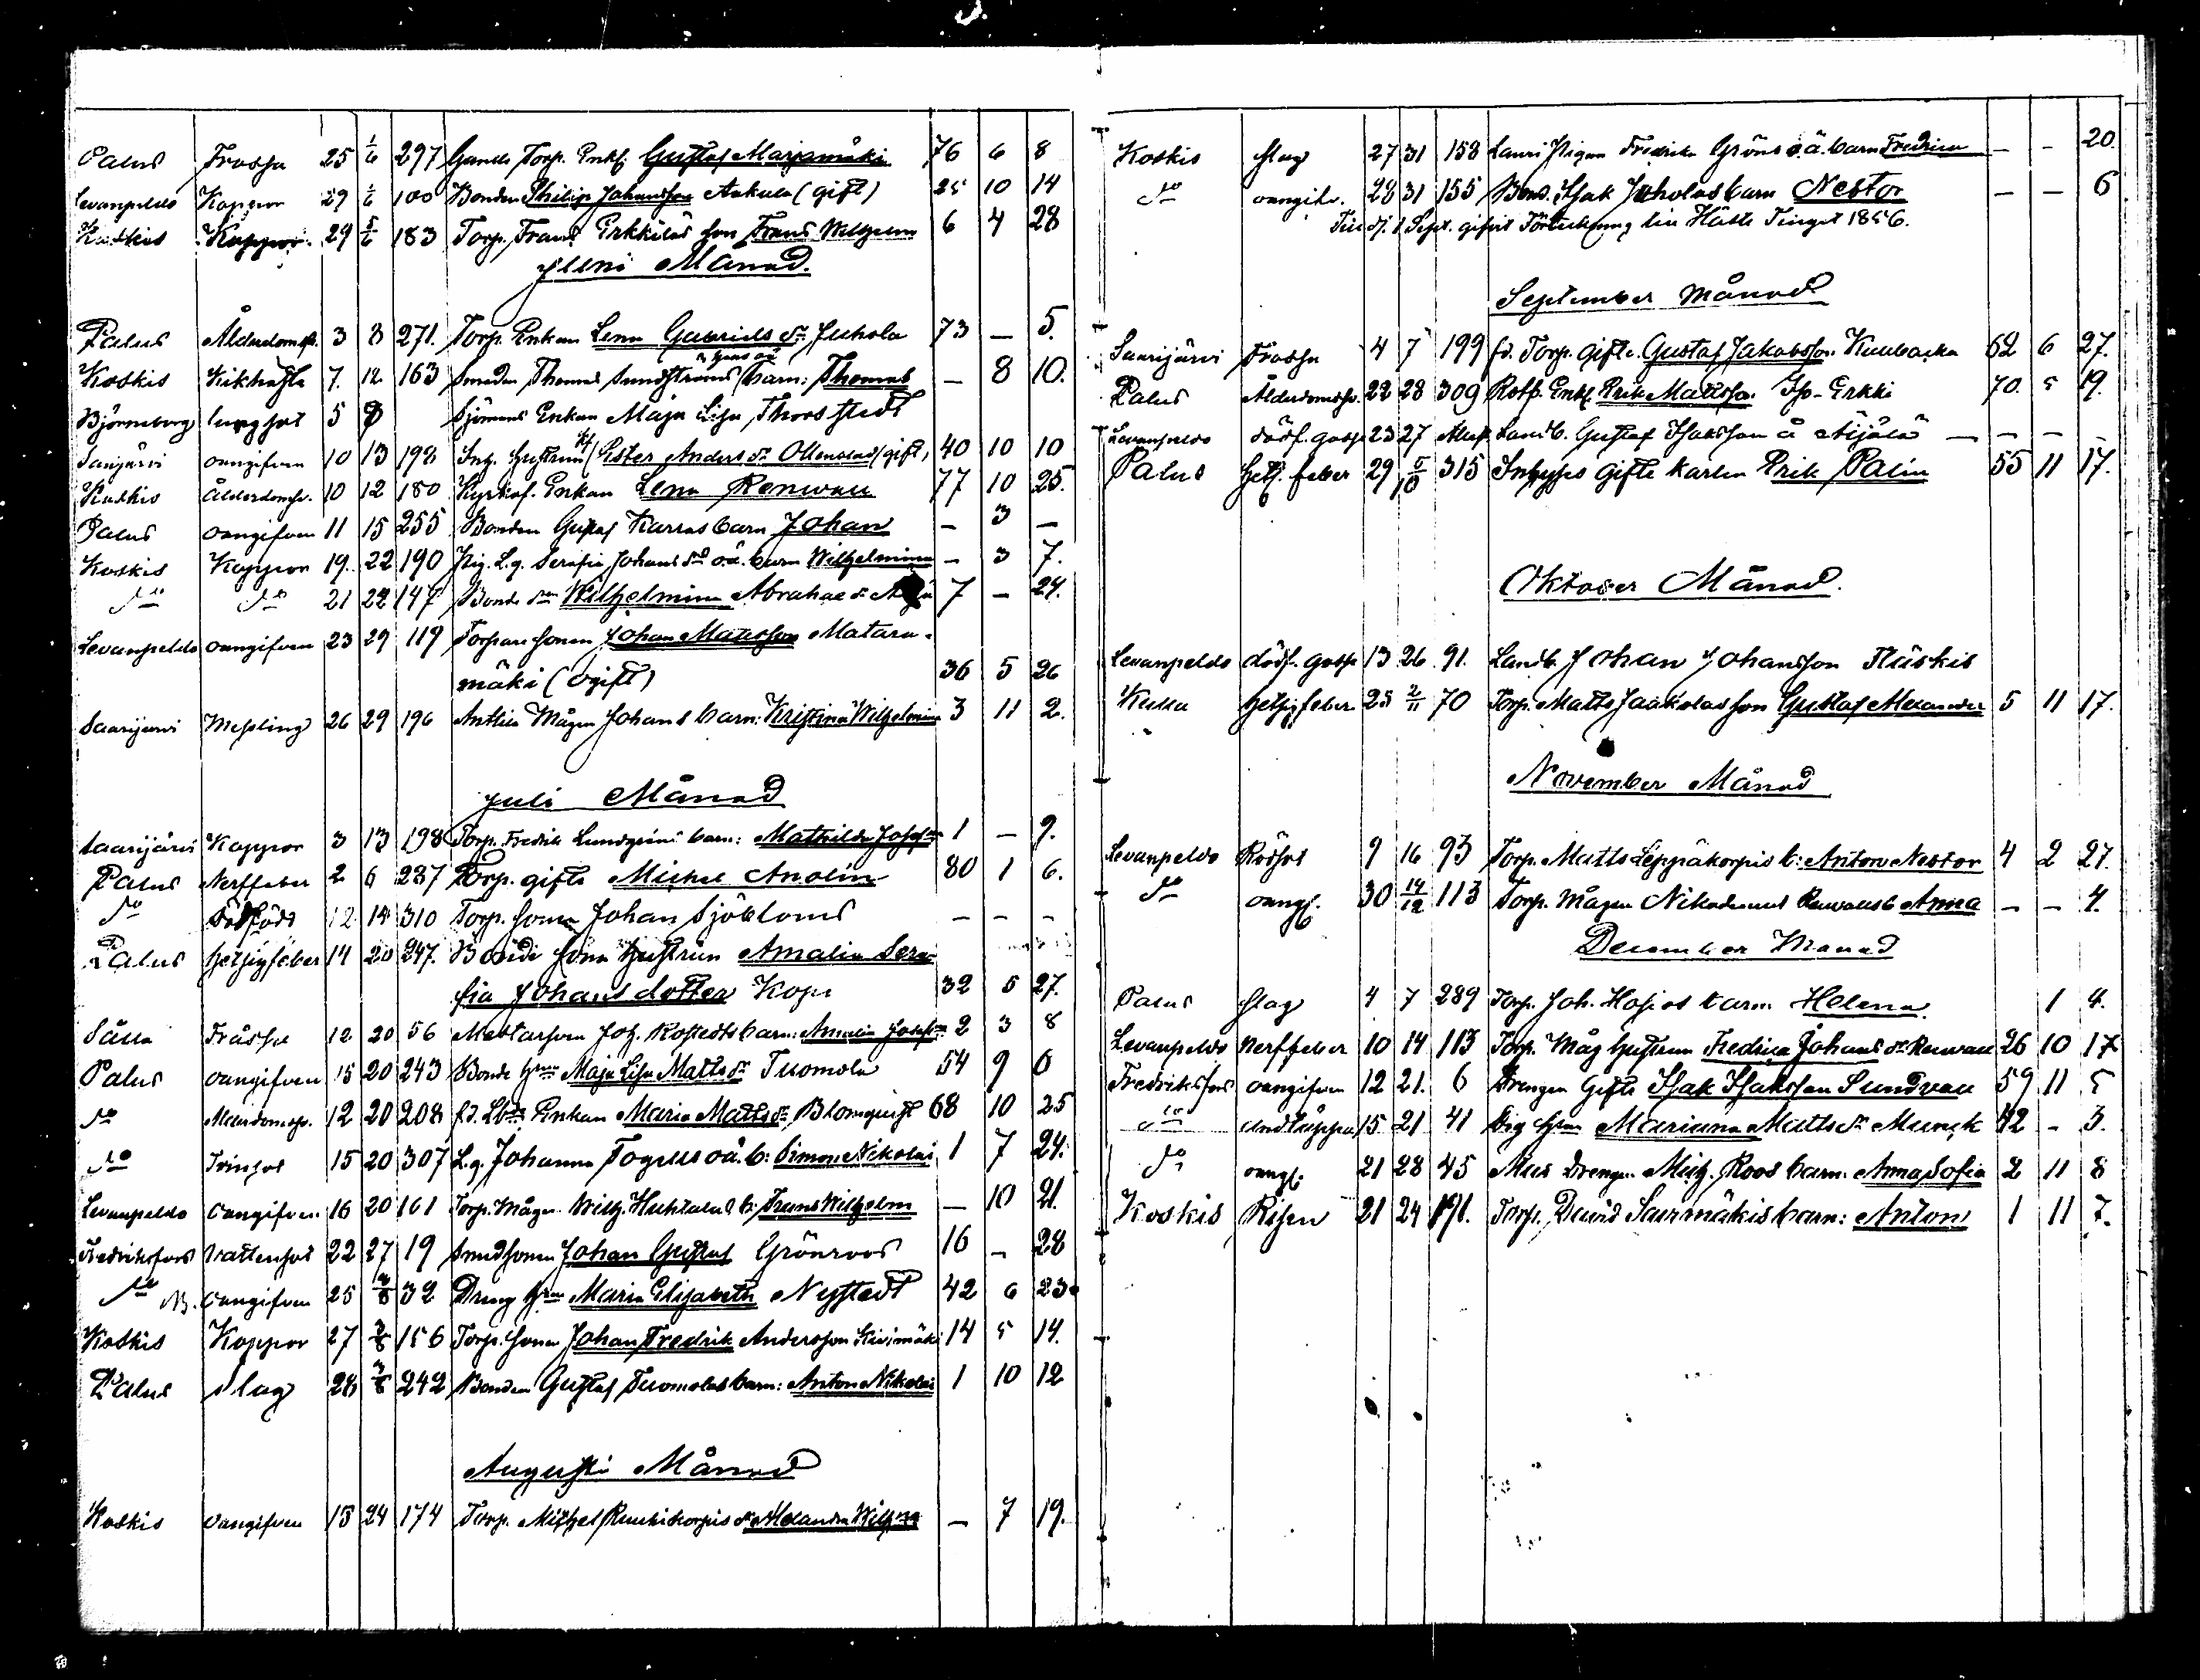 Palus Frossa 25 1/6 297 Gamle Torp. Enkl. Gustaf Marjamäki 76 6 8
Levanpeldo Koppor 29 1/6 100 Bonden Philip Johansson Aukula (gift) 25 10 14
Koskis Koppor 29 5/6 183 Torp. Frans Erkkiläs son Frans Wilhelm 6 4 28
Juni Månad.
Palus Ålderdomsk. 3 8 271. Torp. Enkan Lena Gabriels dr Juhola 73 — 5.
Koskis Kikhosta 7. 12 163 Smeden Thomas Sundströms barn: Thomas — 8 10.
Björneborg lungsot 5 Sjömans Enkan Maja Lisa Thorstedt
Saarijärvi oangifven 10 13 198 Inh. hustrun Ester Anders dr Ollonblad (gift) 40 10 10
Koskis Ålderdomsk. 10 12 180 Kyrkof. Enkan Lena Renwall 77 10 25.
Palus oangifven 11 15 255 Bonden Gustaf Karras barn Johan — 3 —
Koskis Koppor 19. 22 190 Pig. L.q. Serafia Johans dr o.ä. barn Wilhelmina — 3 7.
do do 21 22 147 Bonde dn Wilhelmina Abrahams dr 7 — 24.
Levanpeldo oangifven 23 29 119 Torparesonen Johan Mattsson Matara-
mäki (ogift) 36 5 26
Saarijärvi Messling 26 29 196 Anttila Mågen Johans barn: Kristina Wilhelmina 3 11 2.
Juli Månad
Saarijärvi Koppor 3 13 198 Torp. Fredrik Lundgrens barn: Mathilda Josefina 1 — 9.
Palus Nerffeber 2 6 287 Torp. gifte Michel Anolin 80 1 6.
do Dödfödd 12 14 310 Torp. sonen Johan Sjöbloms — — —
Palus hetsigfeber 14 20 247. Bonde sons hustrun Amalia Sera-
fia Johansdotter Kopi 32 5 27.
Sålla Fråssa 12 20 56 Mattarsven Joh. Rostedts barn: Amalia Josefina 2 3 8
Palus oangifven 15 20 243 Bonde hrun Maja Lisa Matts dr Tuomola 54 9 6
do Ålderdomsk. 12 20 208 fd. Lbds Enkan Maria Matts dr Blomquist 68 10 25
do Tvinsot 15 20 307 L.q. Johanna Togelius oä. b: Simon Nikolai 1 7 24.
Levanpeldo oangifven 16 20 101 Torp. Mågen Wilh. Huhtalas b: Frans Wilhelm — 10 21.
Fredriksfors Vattensot 22 27 19 Smedsonen Johan Gustaf Grönroos 16 — 28
do oangifven 25 3/8 32 Dreng hrun Maria Elisabeth Nystedt 42 6 23
Koskis Koppor 27 3/8 156 Torp. sonen Johan Fredrik Andersson Kivimäki 14 5 14.
Palus slag 28 3/8 242 Bonden Gustaf Tuomolas barn: Anton Nikolai 1 10 12
Augusti Månad
Koskis oangifven 15 24 174 Torp. Michel Ruuhikorpis dr Alexandra Wilh:na — 7 19.
Koskis slag 27 31 158 Lauri Pigan Fredrika Gröns o.ä. barn Fredrica — — 20.
do oangifv. 28 31 155 Bond. Isak Juholas barn Nestor — — 6
Till d. 1 Sept. gifvit Förteckning till Höste Tinget 1856.
September Månad
Saarijärvi Frossa 4 7 199 fd. Torp. gifte. Gustaf Jakobsson Kuubacka 62 6 27.
Palus Ålderdomsk. 22 28 309 Rotf. Enkl. Erik Mattsson Iso-Erkki 70. 5 19.
Levanpeldo dödf. gosse 23 27 Landb. Gustaf Isaksson å Äijälä — — — —
Palus Hets. feber 29 5/10 315 Inhyses gifte karlen Erik Palin 55 11 17.
Oktober Månad.
Levanpeldo dödf. gosse 13 26 91. Landb. Johan Johansson Flüskis
Kulla hetsigfeber 25 2/11 70 Torp. Matts Jaakolas son Gustaf Alexander 5 11 17.
November Månad
Levanpeldo Rödsot 9 16 93 Torp. Matts Leppäkorpis b: Anton Nestor 4 2 27.
do oangf. 30 14/12 113 Torp. Mågen Nikodemus Renwalls b Anna — — 4.
December Månad
Palus slag 4 7 289 Torp. Joh. Hosios barn Helena 1 4.
Levanpeldo Nerffeber 10 14 113 Torp. Måg hustrun Fredrica Johans dr Renwall 26 10 17
Fredriksfors oangifven 12 21. 6 Drengen Gifte Isak Isaksson Sundvall 59 11 5
do andtäppa 15 21 41 hrun Mariana Matts dr Munck 42 — 3.
do oangf. 21 28 45 Drengen Mich. Roos barn: Anna Sofia 2 11 8
Koskis Risen 21 24 191. Torp. David Saarimäkis barn: Anton 1 11 7.